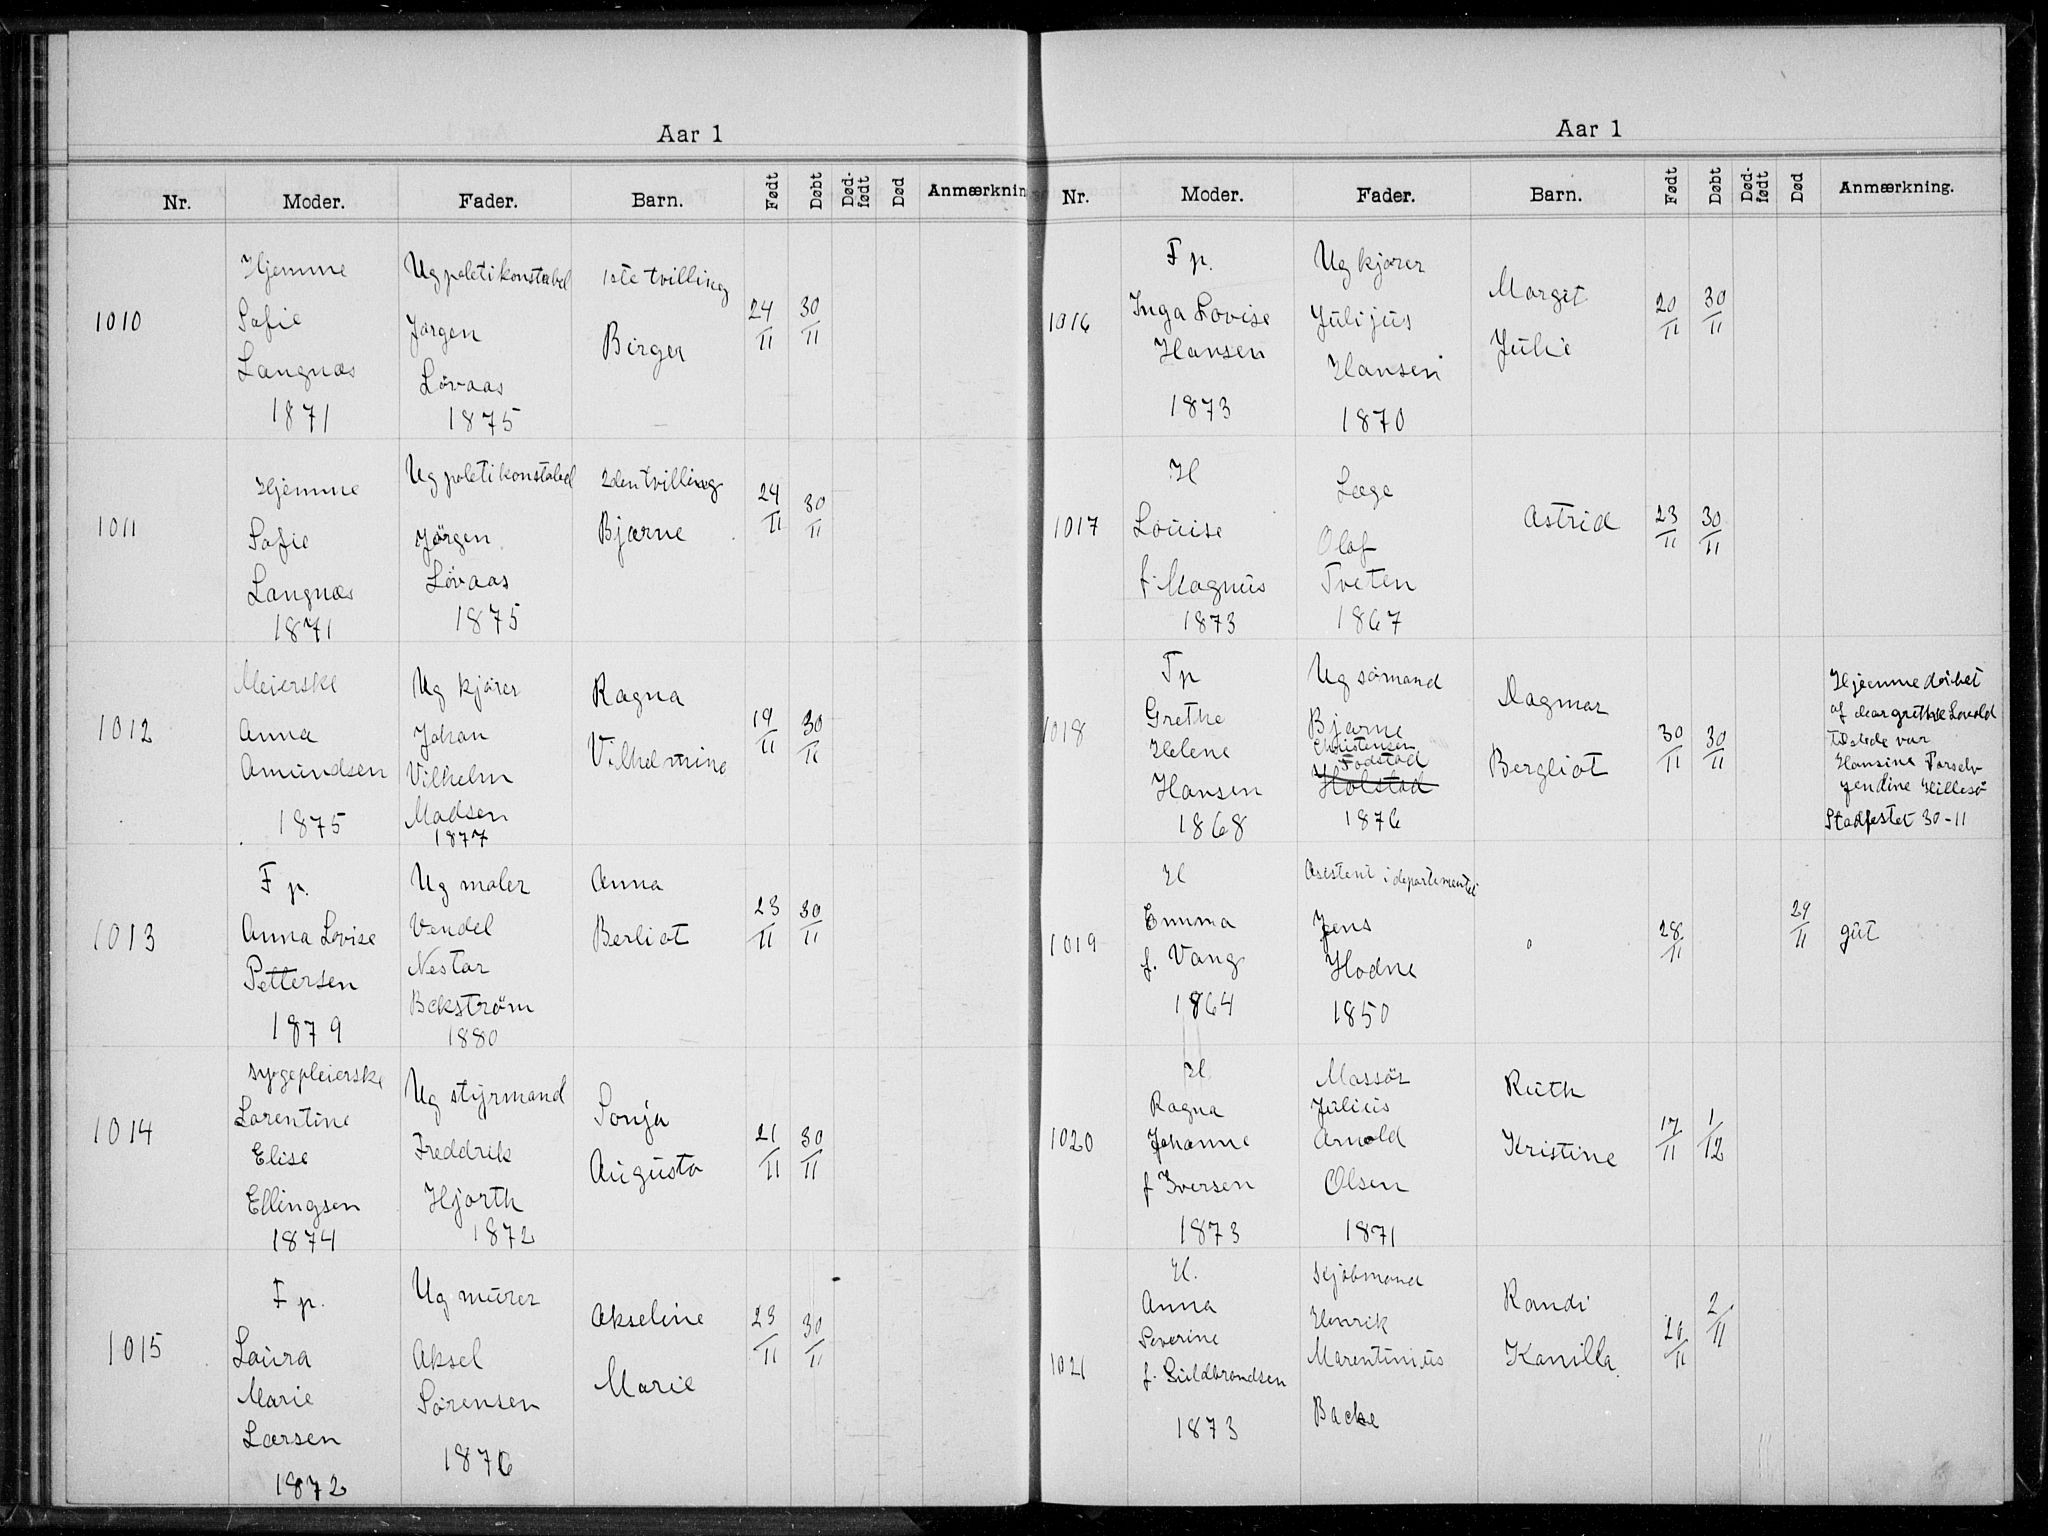 Aar 1
Nr. Moder. Fader. Barn. Født Døbt Død-født Død Anmærknin
1010
Hjemme
Sofie
Langnæs
1871
Ug poletikonstabel
Jørgen
Løvaas
1875
1ste tvilling
Birger
24/11 30/11
1011
Hjemme
Sofie
Langnæs
1871
Ug poletikonstabel
Jørgen
Løvaas
1875
2den tvilling
Bjarne
24/11 30/11
1012
Meierske
Anna
Amundsen
1875
Ug kjører
Johan
Vilhelm
Madsen
1877
Ragna
Vilhelmine
19/11 30/11
1013
F p.
Anna Lovise
Pettersen
1879
Ug maler
Vendel
Nestar
Bekstrøm
1880
Anna
Berliot
23/11 30/11
1014
sygepleierske
Lorentine
Elise
Ellingsen
1874
Ug styrmand
Freddrik
Hjorth
1872
Sonja
Augusta
21/11 30/11
1015
F p.
Laura
Marie
Larsen
1872
Ug murer
Aksel
Sørensen
1876
Akseline
Marie
23/11 30/11
Aar 1
Nr. Moder. Fader. Barn. Født Døbt Død-født Død Anmærkning.
1016
F p.
Inga Lovise
Hansen
1873
Ug kjører
Julijus
Hansen
1870
Margit
Julie
20/11 30/11
1017
H
Louise
f. Magnus
1873
Læge
Olaf
Tveten
1867
Astrid
23/11 30/11
1018
Fp
Grethe
Helene
Hansen
1868
Ug sømand
Bjarne
Christensen
Fodstad
Holstad
1876
Dagmar
Bergliot
30/11 30/11
Hjemmedøbet
af Margrethe Lovold
tilstede var
Hansine
Jendine Hillesø
Stadfestet 30-11
1019
H
Emma
f. Vang
1864
Asistent i departementet
Jens
Hodne
1850
28/11 29/11
gut
1020
H
Ragna
Johanne
f Iversen
1873
Massør
Julius
Arnold
Olsen
1871
Ruth
Kristine
17/11 1/12
1021
H.
Anna
Severine
f. Guldbrandsen
1873
Kjøbmand
Henrik
Marentinius
Backe
Randi
Kamilla
20/11 2/11